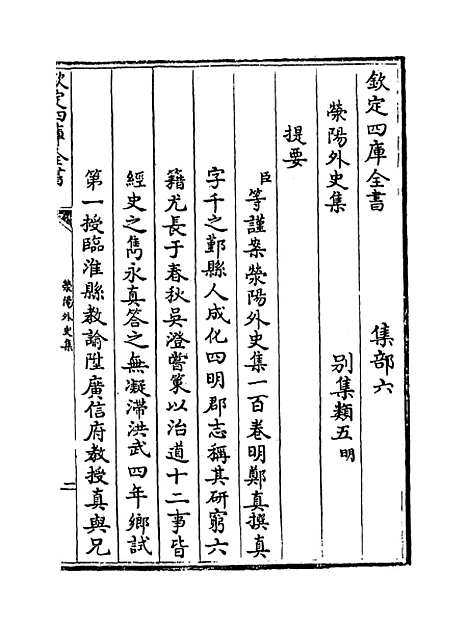 欽定四庫全書　集部六
滎陽外史集　別集類五明
提要
臣等謹案滎陽外史集一百卷明鄭真撰真
字千之鄞縣人成化四明郡志稱其研窮六
籍尤長于春秋吳澄嘗策以治道十二事皆
經史之雋永真答之無凝滯洪武四年鄉試
第一授臨淮縣教諭陞廣信府教授真與兄
欽定四庫全書
滎陽外史集